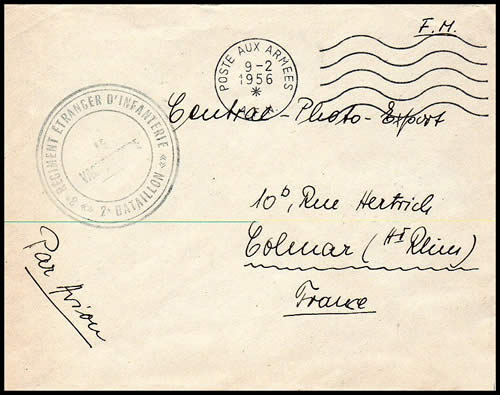 F.M.
POSTE AUX ARMEES
9-2
1956
*
Central-Photo-Export
REGIMENT ETRANGER D'INFANTERIE
2e BATAILLON
10b, Rue Hertrich
Colmar (Ht Rhin)
France
Par Avion